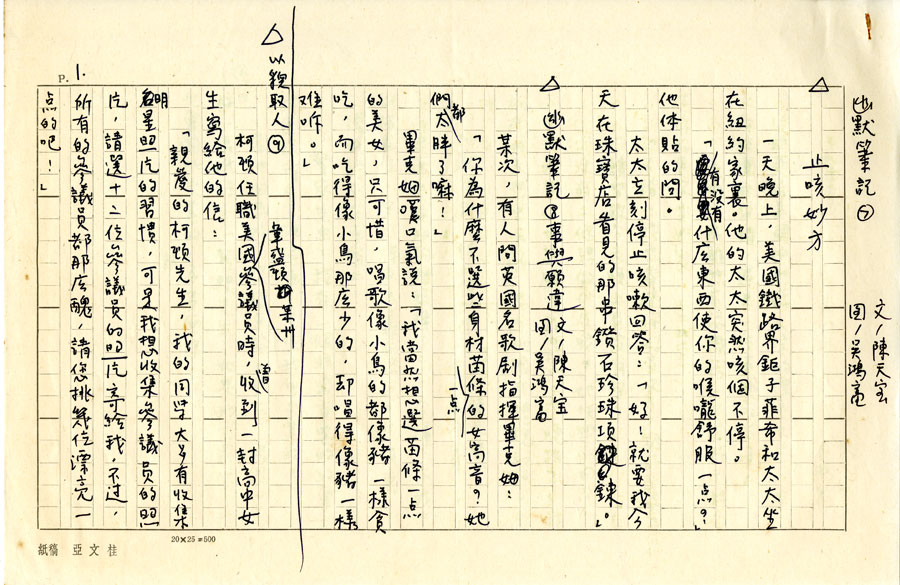 幽默筆記⑦
文／陳天宝
圖／吳鴻富
△　止咳妙方
一天晚上，美國鐵路界鉅子菲希和太太坐
在紐約家裏。他的太太突然咳個不停。
「有沒有什庅東西使你的喉嚨舒服一点？」
他体貼的問。
太太立刻停止咳嗽回答：「好！就要我今
天在珠寶店看見的那串鑽石珍珠項鍊。」
△　幽默筆記⑧事與願違　文／陳天宝
圖／吳鴻富
某次，有人問英國名歌劇指揮畢克姆：
「你為什麼不選些身材苗條一点的女高音？她
們都太胖了嘛！」
畢克姆嘆口氣說：「我當然想選苗條一点
的美女，只可惜，唱歌像小鳥的都像豬一樣貪
吃，而吃得像小鳥那庅少的，却唱得像豬一樣
难听。」
△　以貌取人⑨
柯頓任職美國華盛頓州參議員時，曾收到一封高中女
生寫給他的信：
「親愛的柯頓先生，我的同学大多有收集
明星照片的習慣，可是我想收集參議員的照
片，請選十二位參議員的照片寄給我，不过，
所有的參議員都那庅醜，請您挑幾位漂亮一
点的吧！」
P. 1.
20×25＝500
紙稿 亞文桂